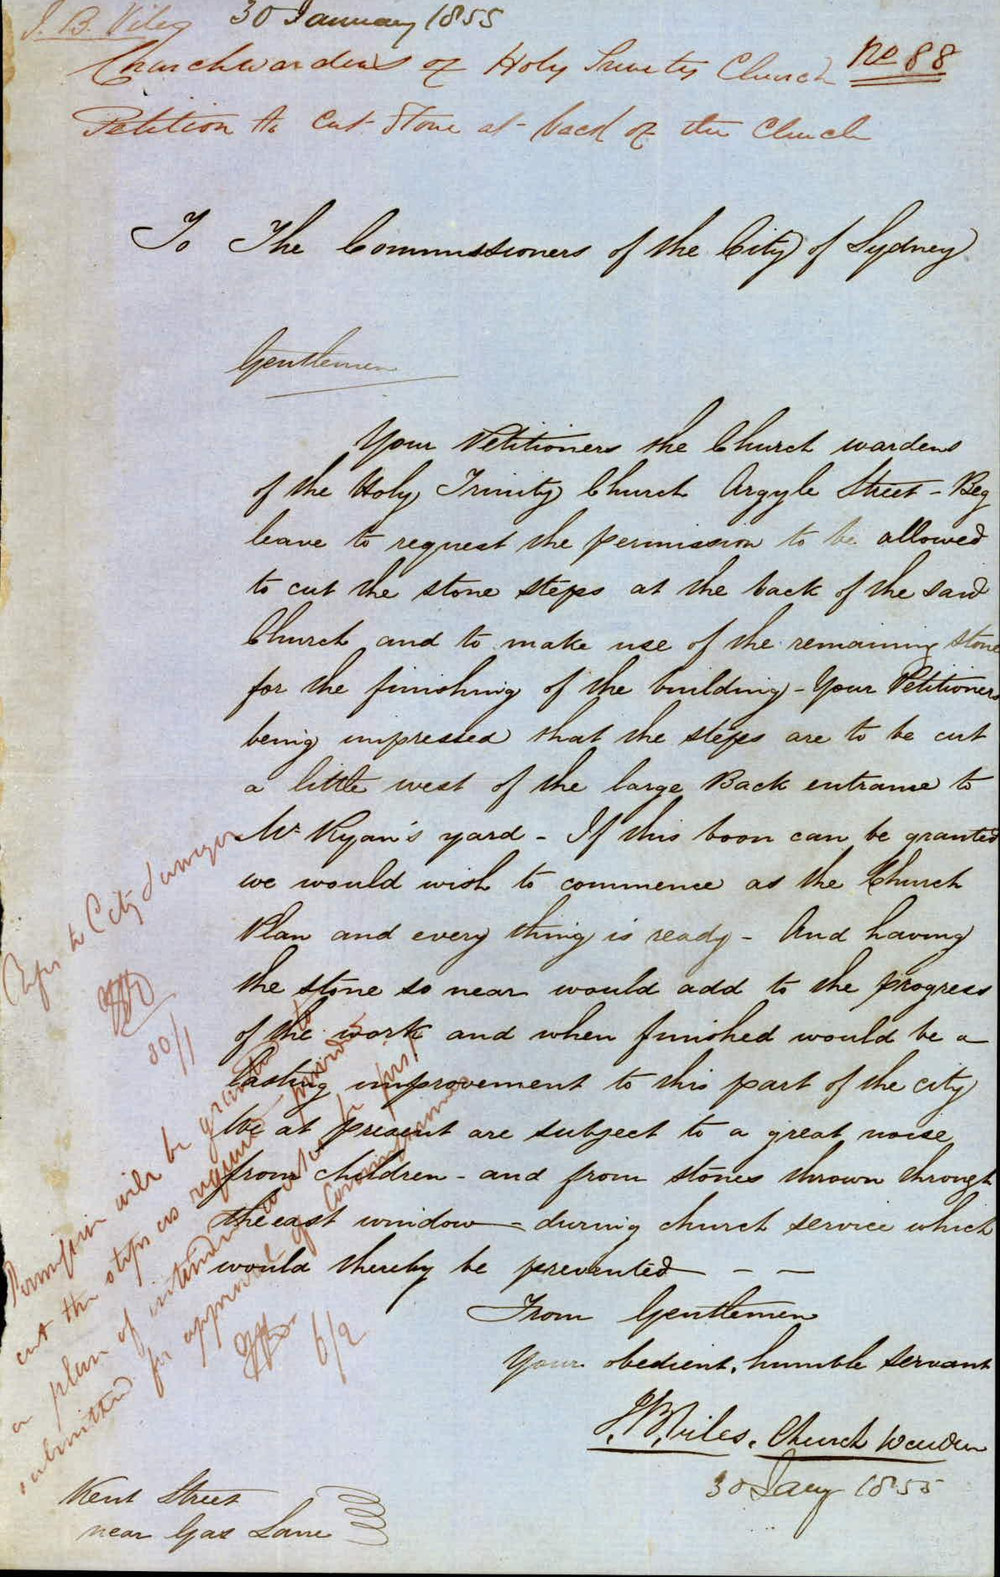 J. B. Viles 30 January 1855
Churchwardens of Holy Trinity Church No 88
Petition to cut Stone at back of the Church
To The Commissioners of the City of Sydney
Gentlemen
Your Petitioners the Church wardens
of the Holy Trinity Church Argyle Street - Beg
leave to request the permission to be allowed
to cut the stone steps at the back of the said
Church and to make use of the remaining stone
for the finishing of the building - Your Petitioners
being impressed that the steps are to be cut
a little west of the large Back entrance to
Mr Ryan's yard - If this boon can be granted
we would wish to commence as the Church
Plan and every thing is ready - And having
the stone so near would add to the progress
of the work and when finished would be a
lasting improvement to this part of the city
We at present are subject to a great noise
from children - and from stones thrown through
the east window - during church service which
would thereby be prevented - -
From Gentlemen
Your obedient, humble servant
J. B. Viles, Church Warden
30 Jany 1855
Kent Street
near Gas Lane
Refer to City Surveyor
30/1
Permission will be granted to
cut the steps as required provided
a plan of intended work be first
submitted for approval of Commissioners
6/2